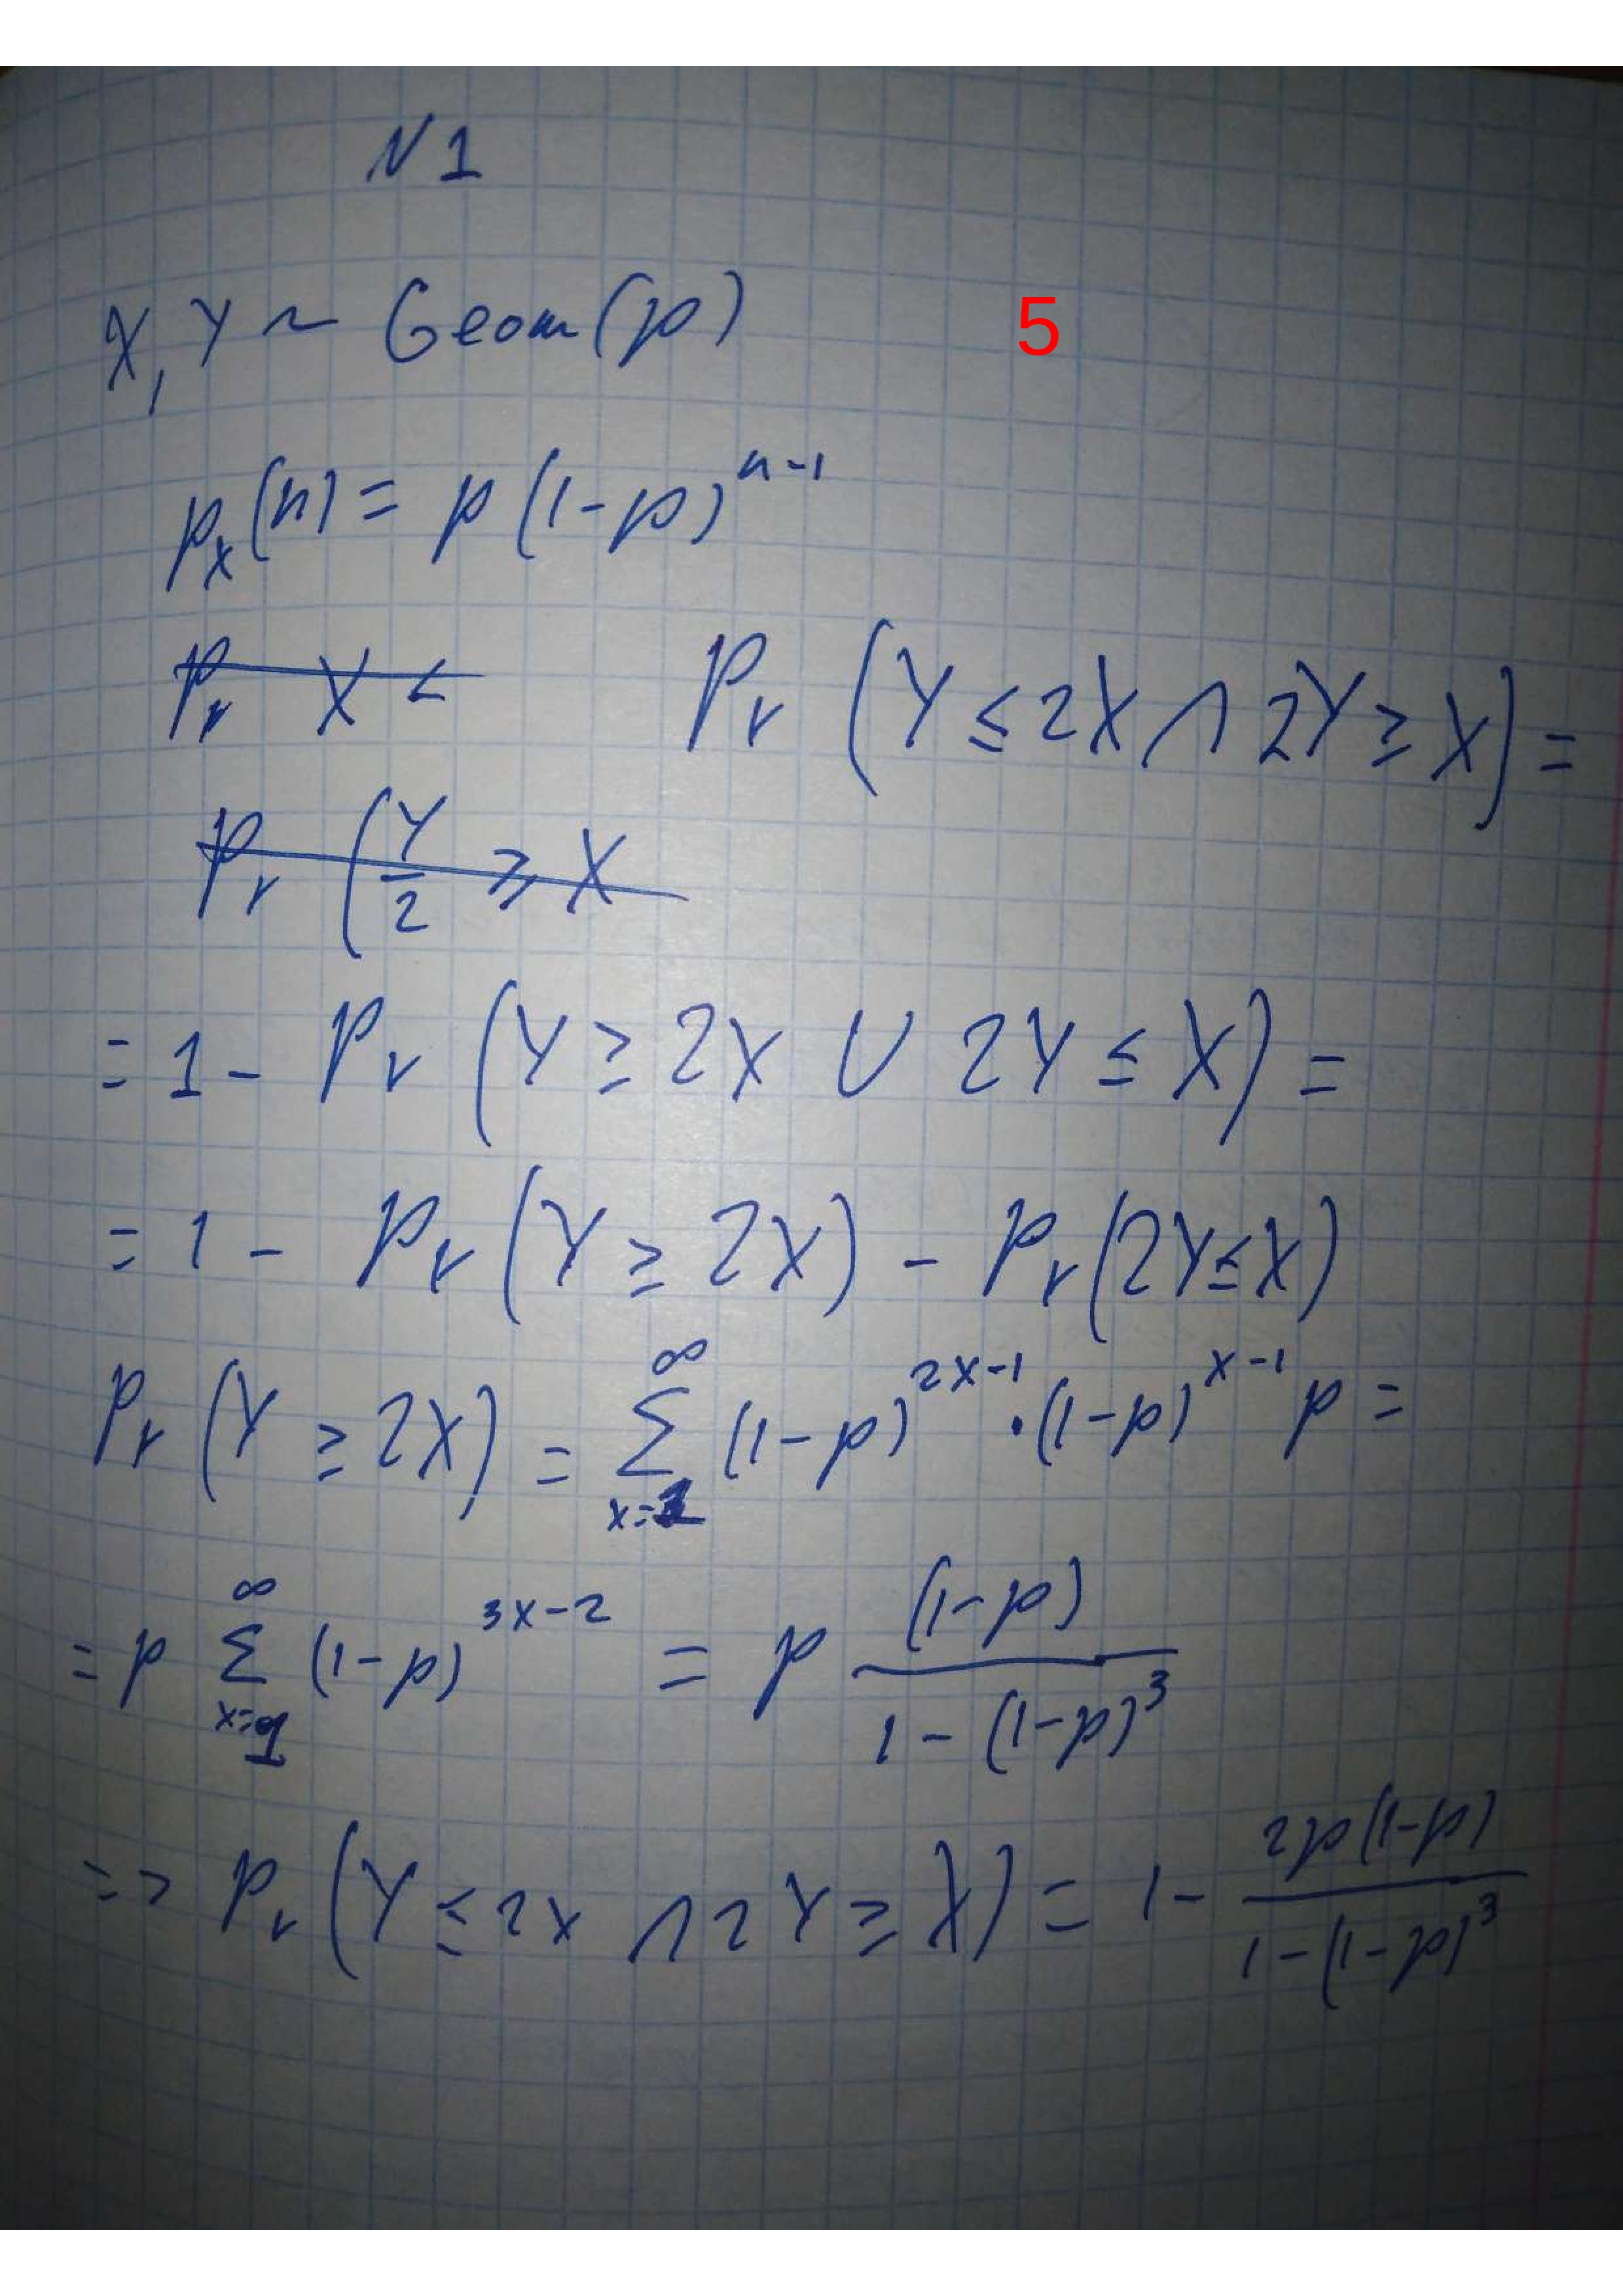 N 1
X, Y ~ Geom(p) 5
p_X(n) = p(1-p)^{n-1}
Pr X < Pr (Y ≤ 2X ∩ 2Y ≥ X) =
Pr (Y/2 ≥ X
= 1 - Pr (Y ≥ 2X ∪ 2Y ≤ X) =
= 1 - Pr (Y ≥ 2X) - Pr (2Y ≤ X)
Pr (Y ≥ 2X) = ∑_{x=1}^{∞} (1-p)^{2x-1} · (1-p)^{x-1} p =
= p ∑_{x=1}^{∞} (1-p)^{3x-2} = p (1-p)/(1-(1-p)^3)
=> Pr (Y ≤ 2X ∩ 2Y ≥ X) = 1 - 2p(1-p)/(1-(1-p)^3)